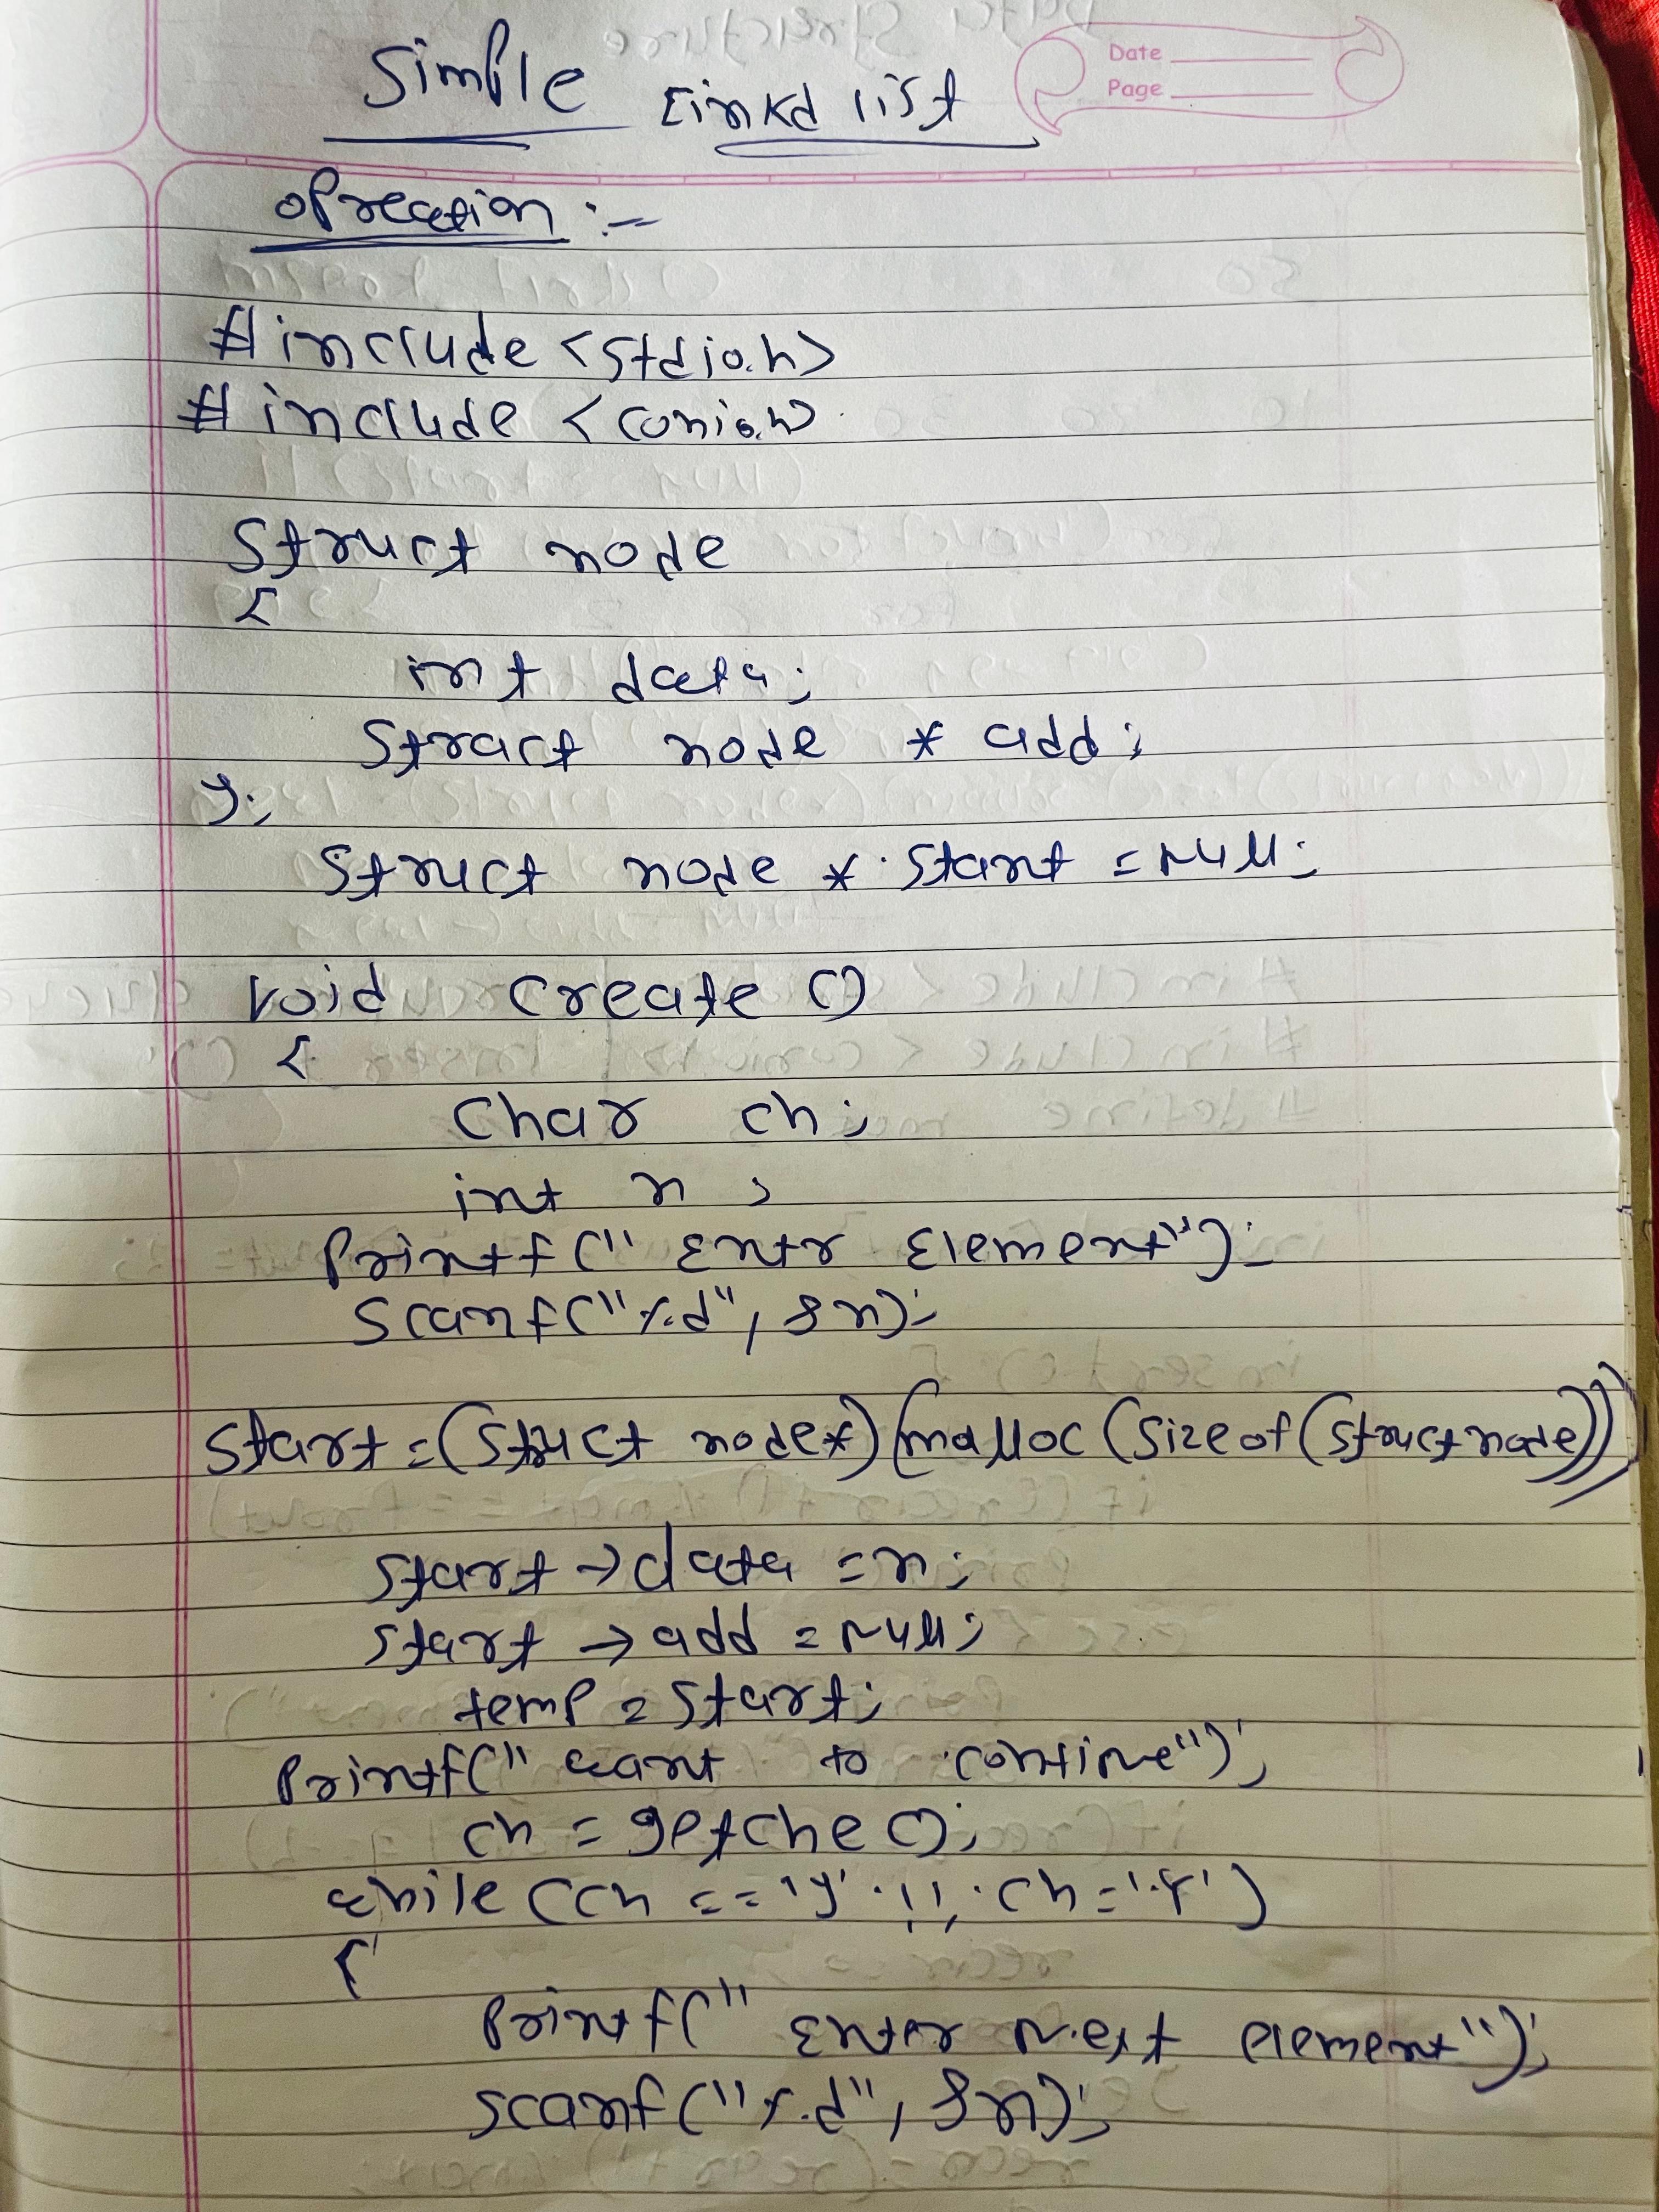 Date
Page
Simple Linkd list
opreation :-
#include <stdio.h>
#include <conio.h>
struct node
{
int data;
struct node * add;
};
struct node * start = NULL;
void create ()
{
char ch;
int n;
printf(" Entr Element");
scanf("%d", &n);
start = (struct node*) (malloc (sizeof (struct node)))
start → data = n;
start → add = NULL;
temp = start;
printf(" want to contine");
ch = getche ();
while (ch == 'y' || ch = 'Y')
{
printf(" Enter Next element");
scanf("%d", &n);